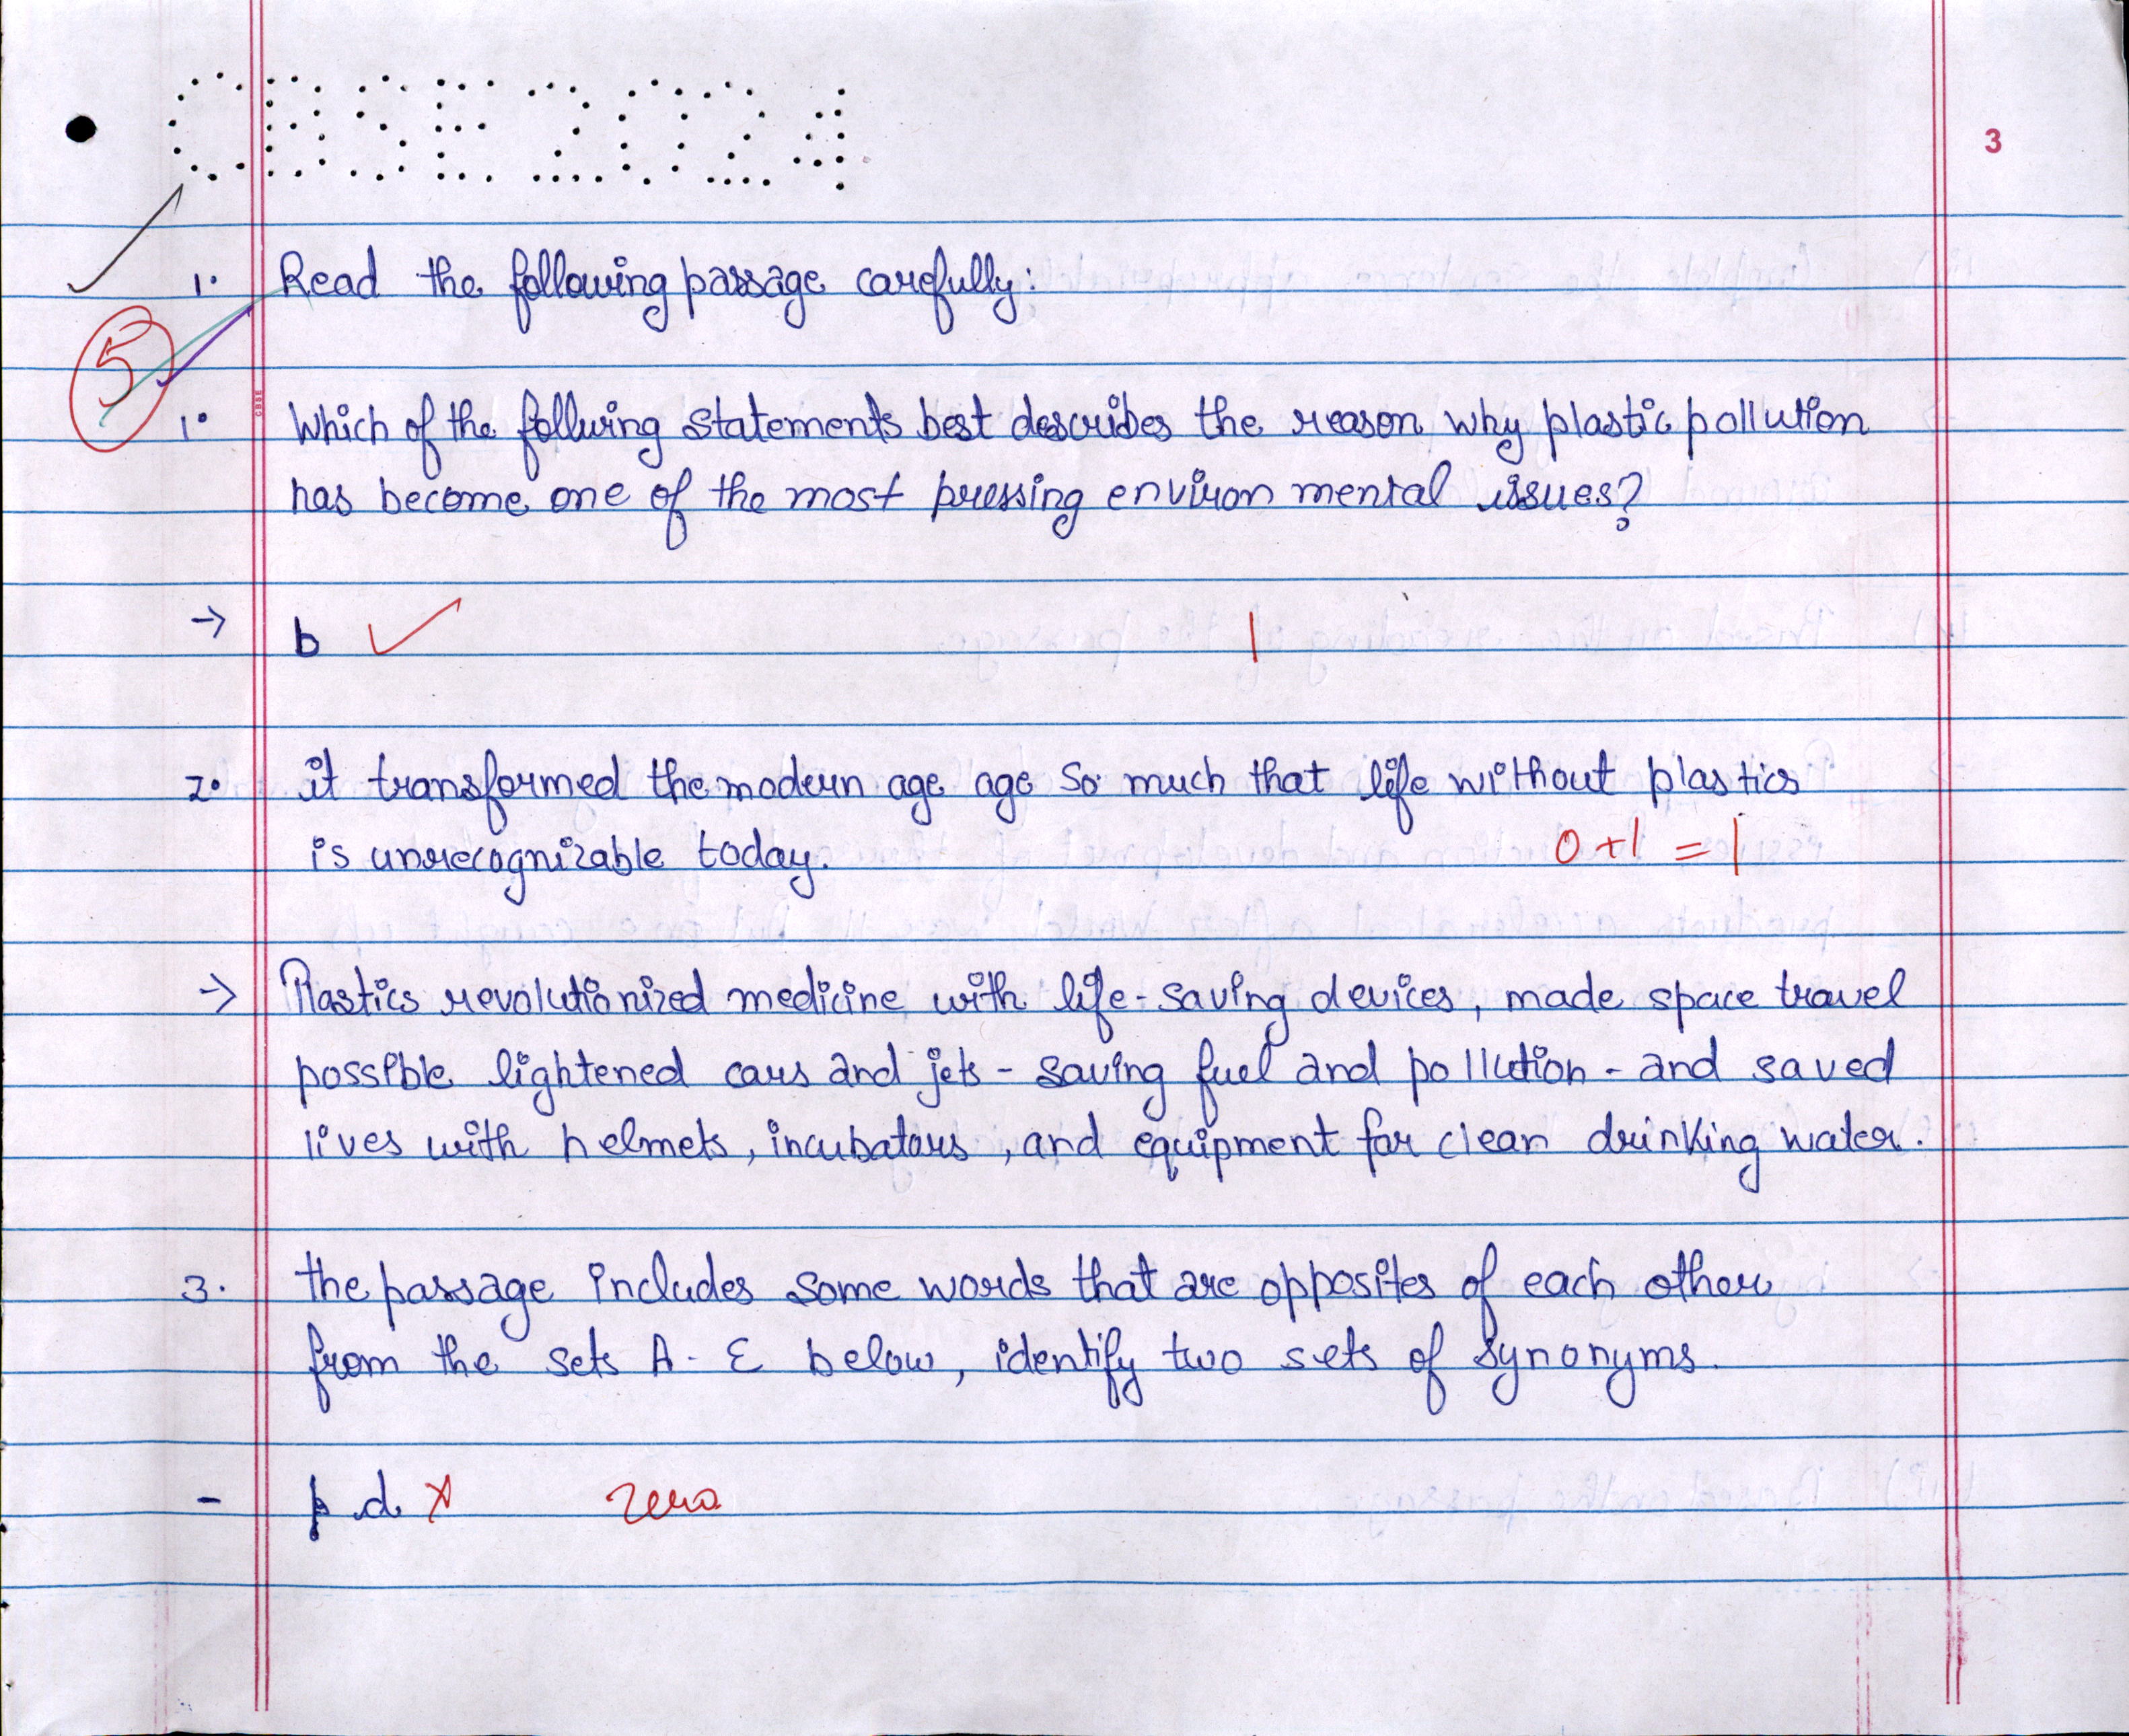 CBSE 2024
3
1. Read the following passage carefully:
5
1. Which of the follwing statements best describes the reason why plastic pollution
has become one of the most pressing environmental issues?
→ b ✓ 1
2. it transformed the modern age age so much that life without plastics
is unrecognizable today. 0+1 = 1
→ Plastics revolutionized medicine with life-saving devices, made space travel
possible lightened cars and jets - saving fuel and pollution - and saved
lives with helmets, incubators, and equipment for clean drinking water.
3. the passage includes some words that are opposites of each other
from the sets A-E below, identify two sets of synonyms.
- d ✗ zero